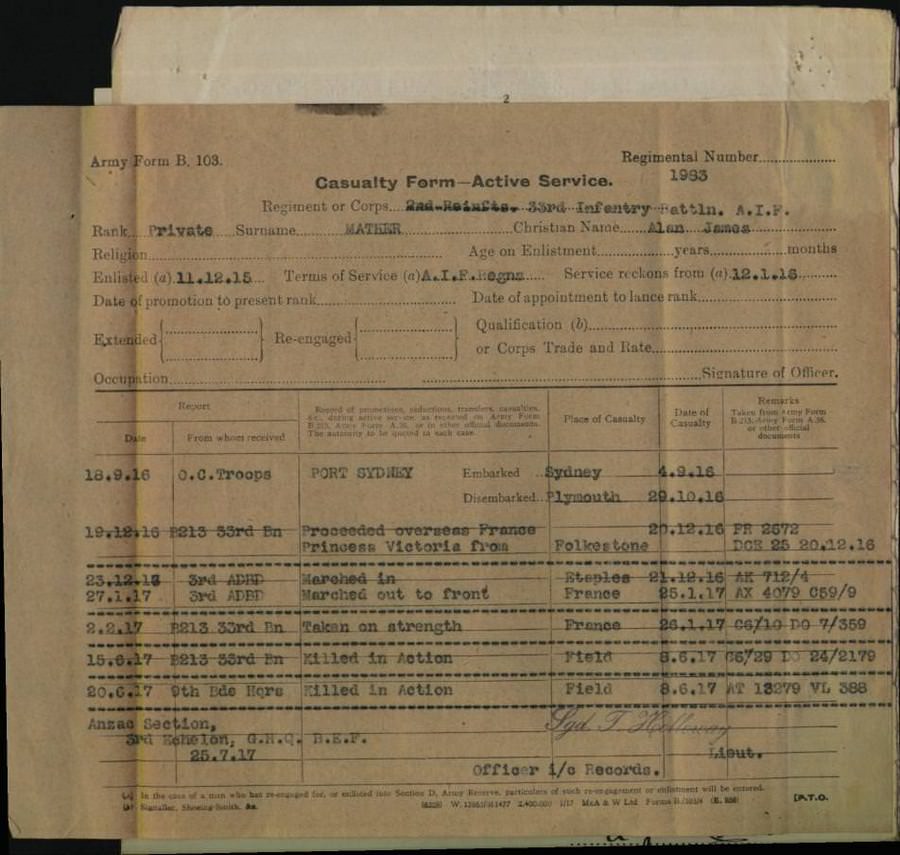 2
Army Form B. 103.
Regimental Number
1983
Casualty Form—Active Service.
Regiment or Corps 2nd Reinfts. 33rd Infantry Battln. A.I.F.
Rank Private Surname MATHER Christian Name Alan James
Religion Age on Enlistment years months
Enlisted (a) 11.12.15 Terms of Service (a) A.I.F.Regns Service reckons from (a) 12.1.16
Date of promotion to present rank Date of appointment to lance rank
Extended Re-engaged Qualification (b)
or Corps Trade and Rate
Occupation Signature of Officer.
Report
Date From whom received
Record of promotions, reductions, transfers, casualties, &c., during active service, as reported on Army Form B.213, Army Form A.36, or in other official documents. The authority to be quoted in each case.
Place of Casualty
Date of Casualty
Remarks
Taken from Army Form B.213, Army Form A.36, or other official documents
18.9.16 O.C.Troops PORT SYDNEY Embarked Sydney 4.9.16
Disembarked Plymouth 29.10.16
19.12.16 B213 33rd Bn Proceeded overseas France 20.12.16 FR 2672
Princess Victoria from Folkestone DCE 25 20.12.16
23.12.16 3rd ADBD Marched in Etaples 21.12.16 AK 712/4
27.1.17 3rd ADBD Marched out to front France 25.1.17 AX 4079 C59/9
2.2.17 B213 33rd Bn Taken on strength France 26.1.17 C6/10 DO 7/359
15.6.17 B213 33rd Bn Killed in Action Field 8.6.17 C6/29 DO 24/2179
20.6.17 9th Bde Hqrs Killed in Action Field 8.6.17 AT 13279 VL 388
Anzac Section, Sgd. T. Holloway
3rd Echelon, G.H.Q. B.E.F.
25.7.17 Lieut.
Officer i/c Records.
(a) In the case of a man who has re-engaged for, or enlisted into Section D, Army Reserve, particulars of such re-engagement or enlistment will be entered.
(b) Signaller, Shoeing-Smith, &c. 2,400,000 1/17 McA & W Ltd Forms [P.T.O.